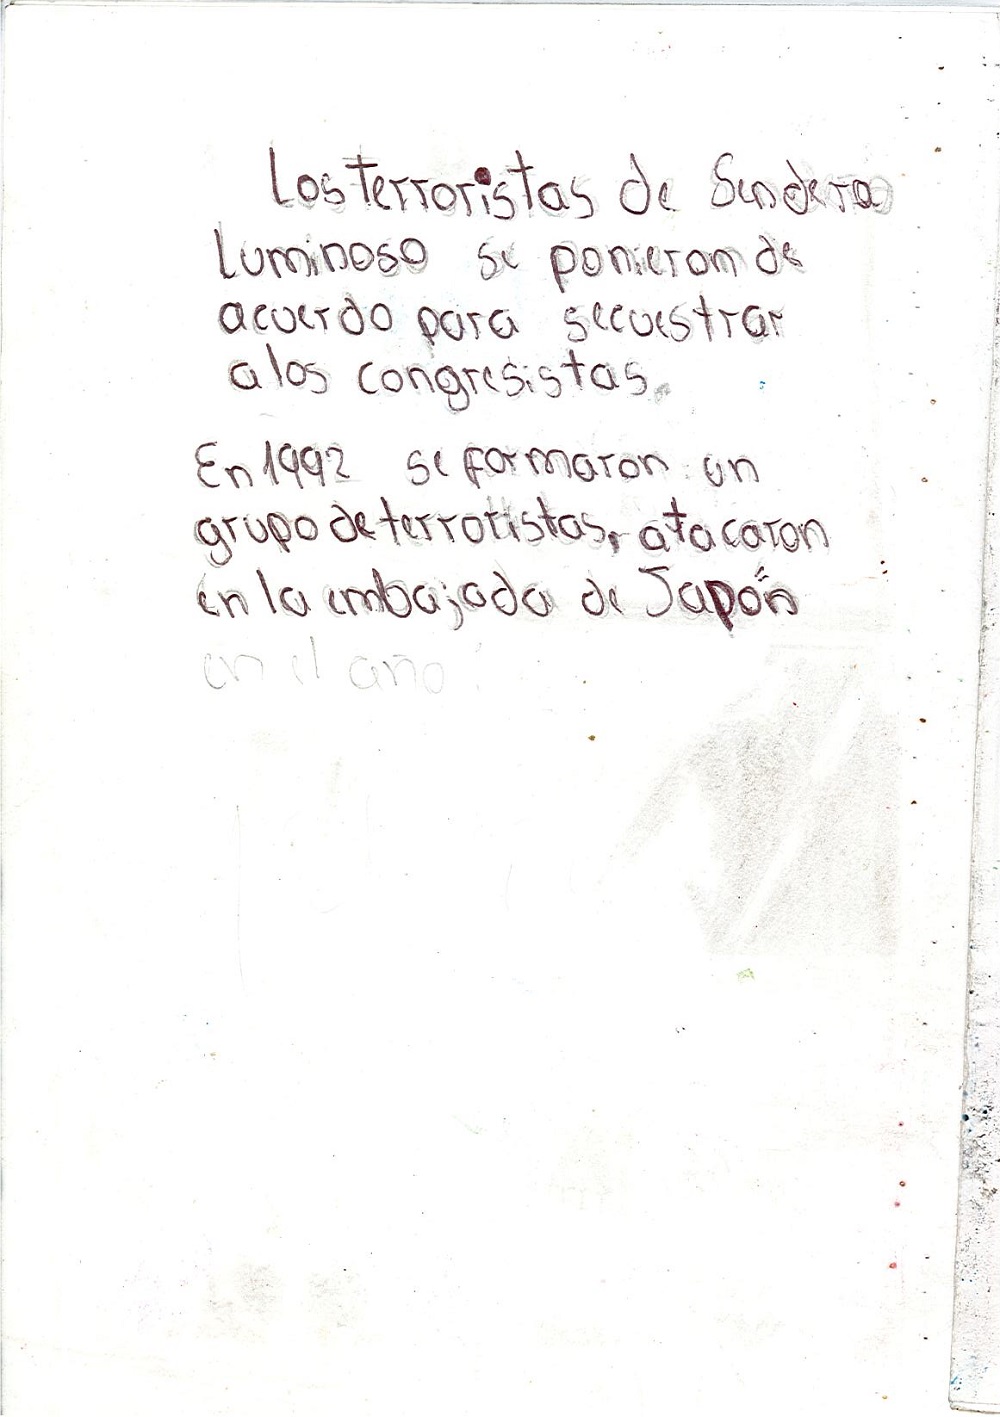 Los terroristas de Sendera
Luminoso se ponierom de
acuerdo para secuestrar
a los congresistas.
En 1992 se formaron un
grupo de terroristas, atacaron
en la embajada de Japón
en el año